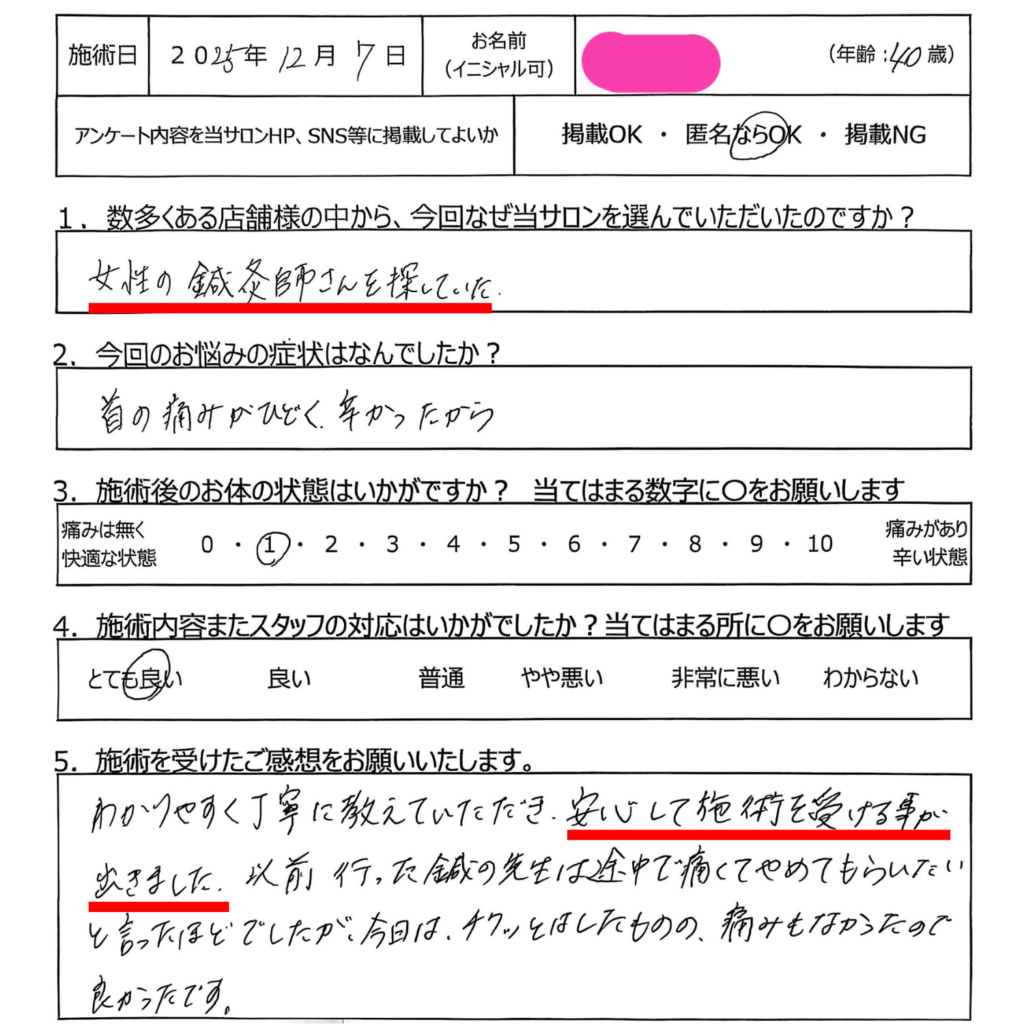 施術日 2025年 12月 7日 お名前 (イニシャル可) (年齢:40歳)
アンケート内容を当サロンHP、SNS等に掲載してよいか 掲載OK ・ 匿名ならOK ・ 掲載NG
1. 数多くある店舗様の中から、今回なぜ当サロンを選んでいただいたのですか?
女性の鍼灸師さんを探していた.
2. 今回のお悩みの症状はなんでしたか?
首の痛みがひどく、辛かったから
3. 施術後のお体の状態はいかがですか? 当てはまる数字に〇をお願いします
痛みは無く 快適な状態 0 ・ 1 ・ 2 ・ 3 ・ 4 ・ 5 ・ 6 ・ 7 ・ 8 ・ 9 ・ 10 痛みがあり 辛い状態
4. 施術内容またスタッフの対応はいかがでしたか?当てはまる所に〇をお願いします
とても良い 良い 普通 やや悪い 非常に悪い わからない
5. 施術を受けたご感想をお願いいたします。
わかりやすく丁寧に教えていただき、安心して施術を受ける事が
出きました。以前行った鍼の先生は途中で痛くてやめてもらいたい
と言ったほどでしたが、今日は、チクッとはしたものの、痛みもなかったので
良かったです。